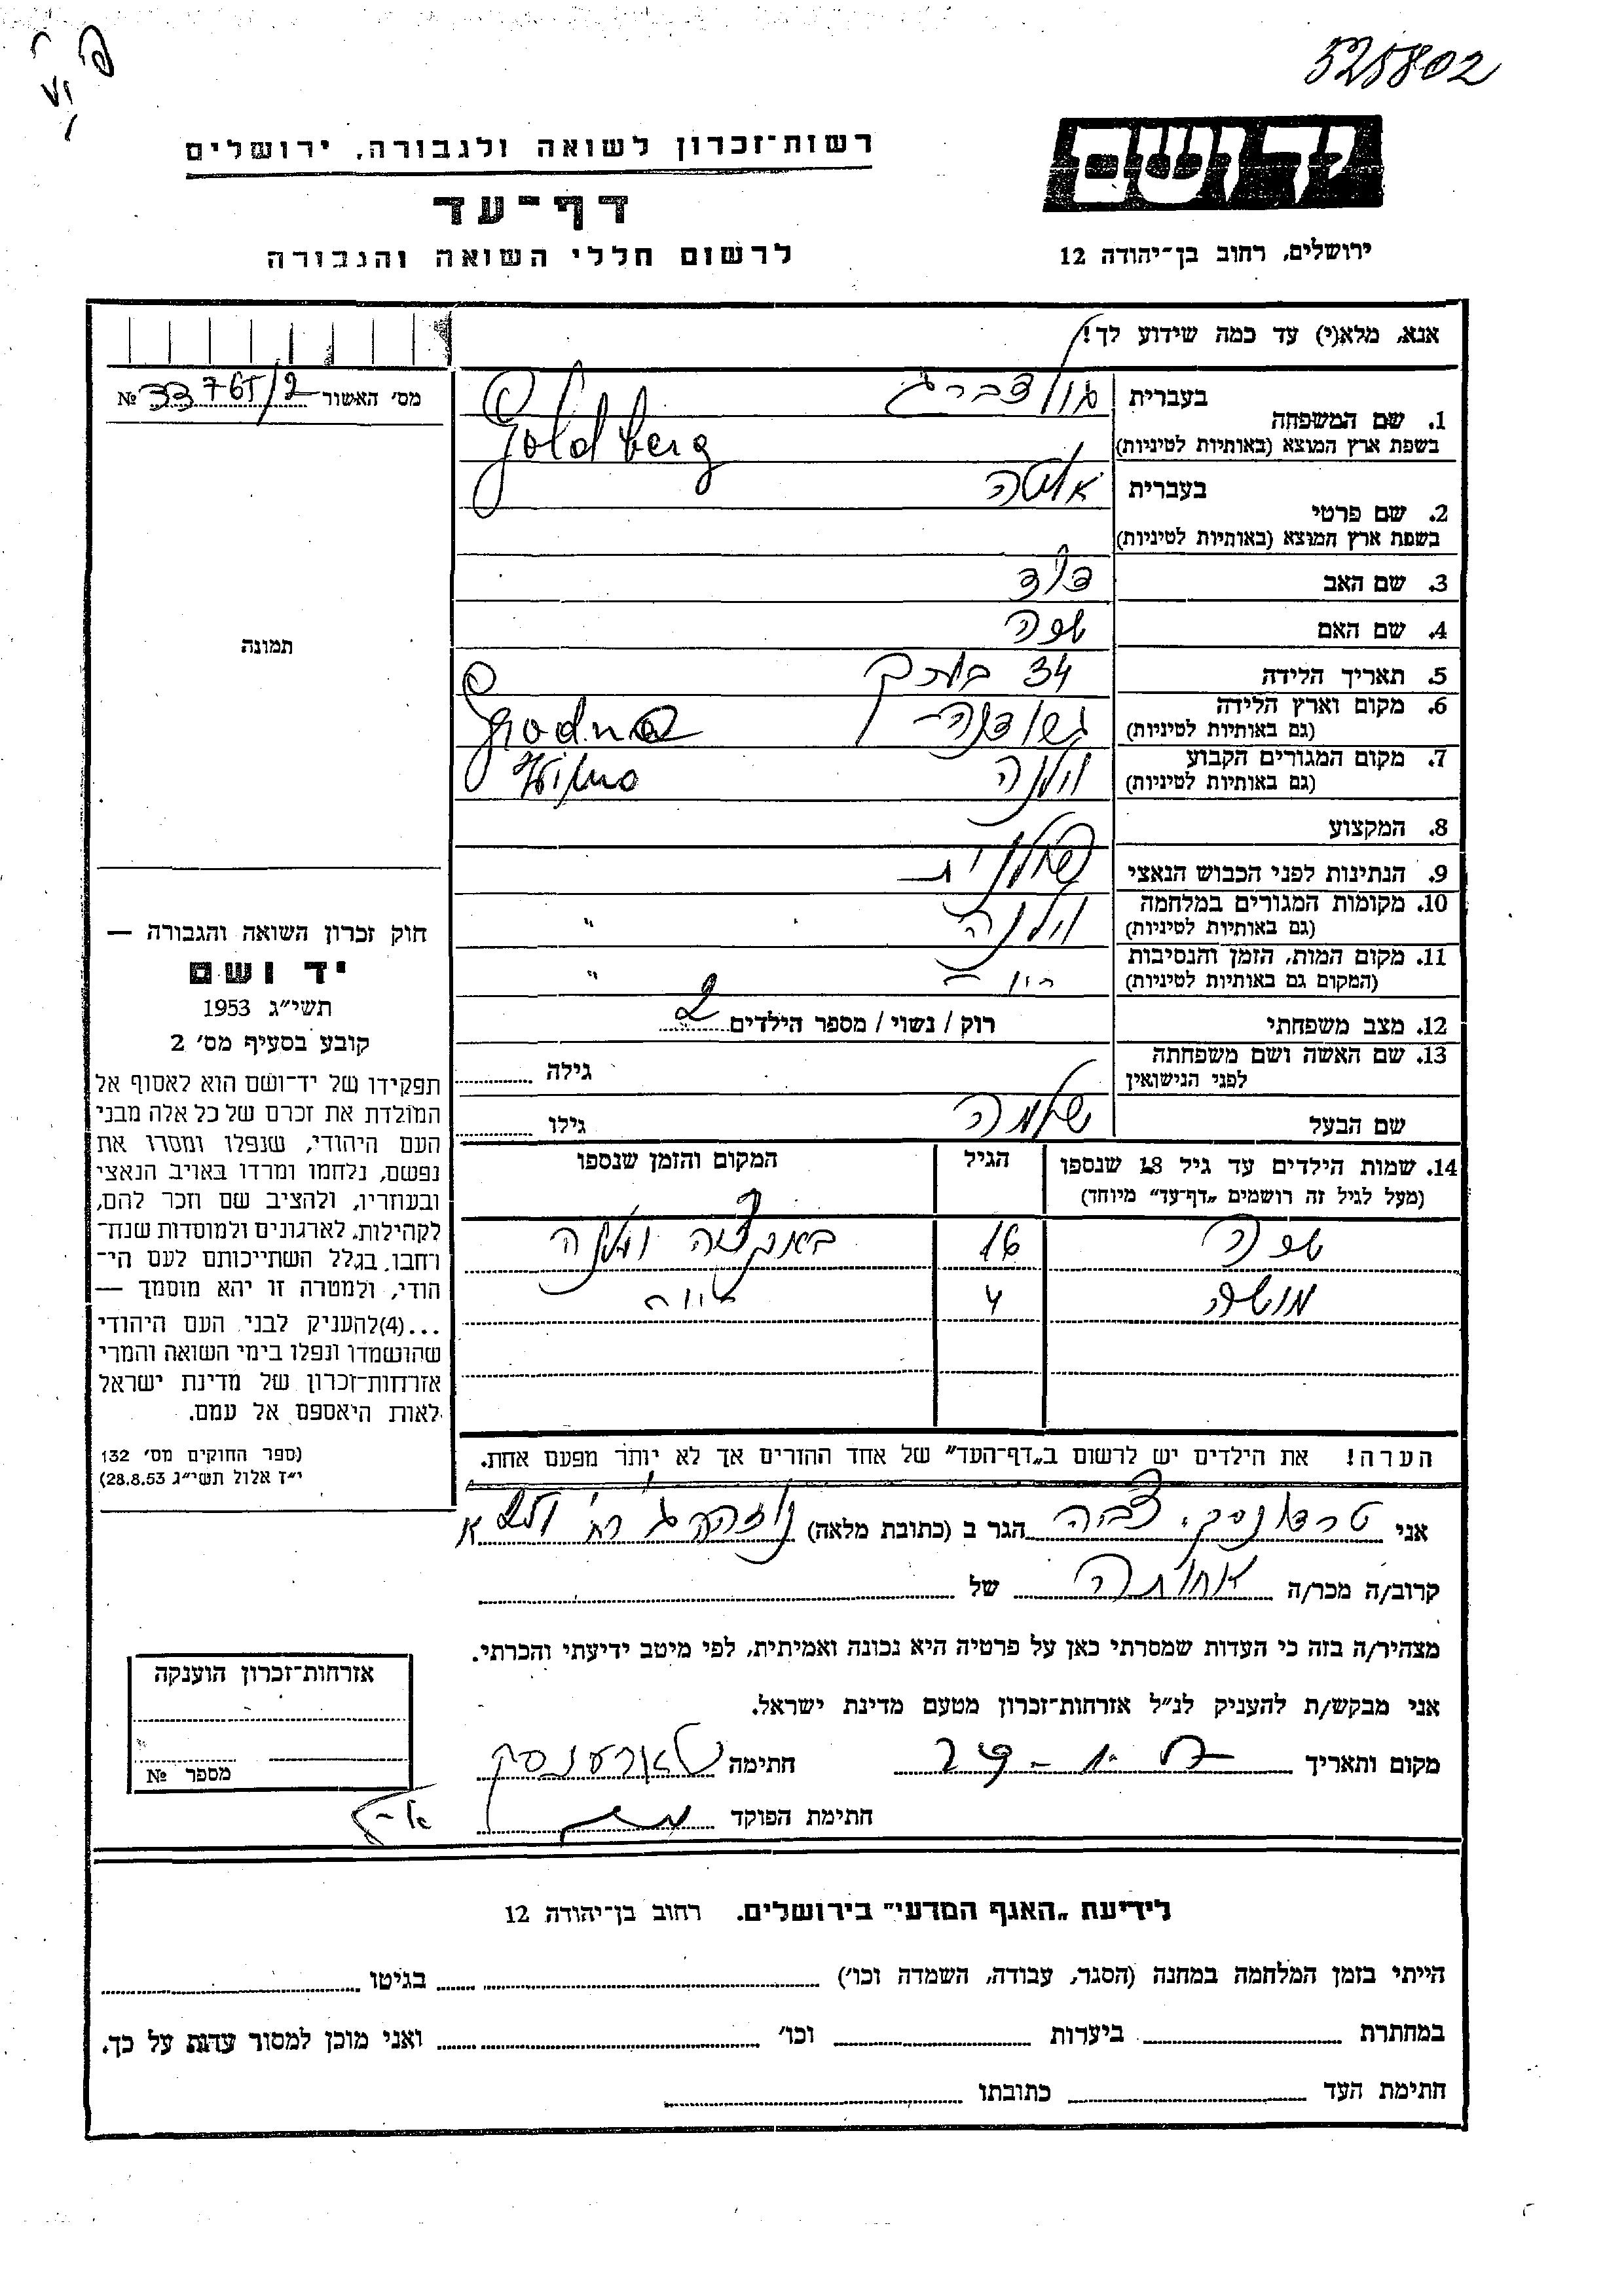 525802
יד ושם
רשות־זכרון לשואה ולגבורה, ירושלים
דף־עד
לרשום חללי השואה והגבורה
ירושלים, רחוב בן־יהודה 12
אנא, מלא(י) עד כמה שידוע לך!
מס׳ האשור № 33765/2
1. שם המשפחה
בעברית גולדברג
בשפת ארץ המוצא (באותיות לטיניות) Goldberg
2. שם פרטי
בעברית
בשפת ארץ המוצא (באותיות לטיניות)
3. שם האב דוד
4. שם האם
5. תאריך הלידה 34
6. מקום וארץ הלידה
(גם באותיות לטיניות) גרודנה Grodno
7. מקום המגורים הקבוע
(גם באותיות לטיניות) וילנה Wilno
8. המקצוע
9. הנתינות לפני הכבוש הנאצי פולנית
10. מקומות המגורים במלחמה
(גם באותיות לטיניות) וילנה "
11. מקום המות, הזמן והנסיבות
(המקום גם באותיות לטיניות) "
12. מצב משפחתי רוק / נשוי / מספר הילדים 2
13. שם האשה ושם משפחתה
לפני הנישואין גילה
שם הבעל שלמה גילו
14. שמות הילדים עד גיל 18 שנספו הגיל המקום והזמן שנספו
(מעל לגיל זה רושמים „דף־עד״ מיוחד)
16 וילנה
4
הערה! את הילדים יש לרשום ב„דף־העד״ של אחד ההורים אך לא יותר מפעם אחת.
תמונה
חוק זכרון השואה והגבורה —
יד ושם
תשי״ג 1953
קובע בסעיף מס׳ 2
תפקידו של יד־ושם הוא לאסוף אל
המולדת את זכרם של כל אלה מבני
העם היהודי, שנפלו ומסרו את
נפשם, נלחמו ומרדו באויב הנאצי
ובעוזריו, ולהציב שם וזכר להם,
לקהילות, לארגונים ולמוסדות שנח־
רחבו, בגלל השתייכותם לעם הי־
הודי, ולמטרה זו יהא מוסמך —
...(4)להעניק לבני העם היהודי
שהושמדו ונפלו בימי השואה והמרי
אזרחות־זכרון של מדינת ישראל
לאות היאספם אל עמם.
(ספר החוקים מס׳ 132
י״ז אלול תשי״ג 28.8.53)
אני הגר ב (כתובת מלאה)
קרוב/ה מכר/ה אחותה של
מצהיר/ה בזה כי העדות שמסרתי כאן על פרטיה היא נכונה ואמיתית, לפי מיטב ידיעתי והכרתי.
אני מבקש/ת להעניק לנ״ל אזרחות־זכרון מטעם מדינת ישראל.
מקום ותאריך חתימה
חתימת הפוקד
אזרחות־זכרון הוענקה
מספר №
לידיעת „האגף המדעי״ בירושלים. רחוב בן־יהודה 12
הייתי בזמן המלחמה במחנה (הסגר, עבודה, השמדה וכו׳) בגיטו
במחתרת ביערות וכו׳ ואני מוכן למסור עדות על כך.
חתימת העד כתובתו